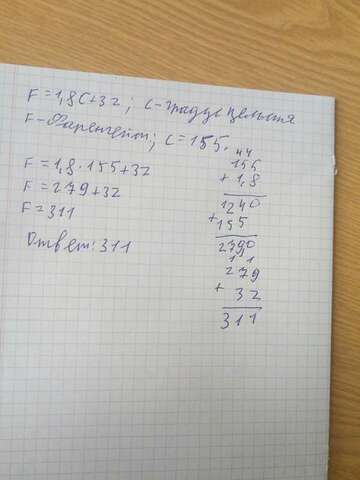 F=1,8C+32; C-градус Цельсия
F-Фаренгейт; C=155.
F=1,8·155+32
F=279+32
F=311
Ответ: 311
44
155
+ 1,8
1240
+ 155
2790
1 1
279
+ 32
311